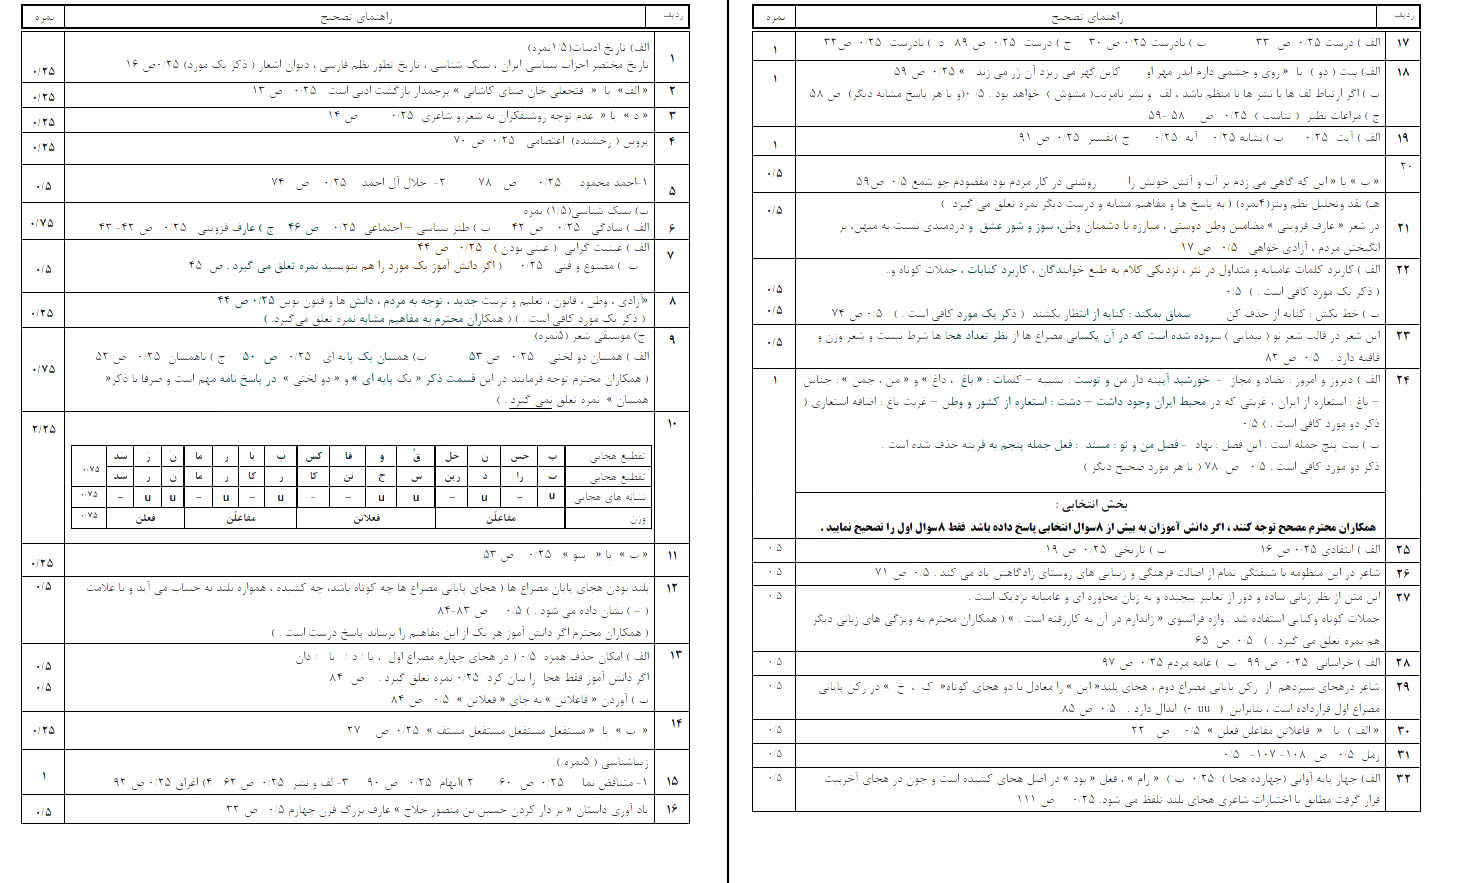 ردیف راهنمای تصحیح نمره
۱ الف) تاریخ ادبیات(۱/۵نمره)
تاریخ مختصر احزاب سیاسی ایران ، سبک شناسی ، تاریخ تطور نظم فارسی ، دیوان اشعار ( ذکر یک مورد) ۰/۲۵ص ۱۶ ۰/۲۵
۲ « الف» یا « فتحعلی خان صبای کاشانی » پرچمدار بازگشت ادبی است ۰/۲۵ ص ۱۳ ۰/۲۵
۳ « د » یا « عدم توجه روشنفکران به شعر و شاعری ۰/۲۵ ص ۱۴ ۰/۲۵
۴ پروین ( رخشنده) اعتصامی ۰/۲۵ ص ۷۰ ۰/۲۵
۵ ۱-احمد محمود ۰/۲۵ ص ۷۸ ۲- جلال آل احمد ۰/۲۵ ص ۷۴ ۰/۵
ب) سبک شناسی(۱/۵) نمره
۶ الف ) سادگی ۰/۲۵ ص ۴۲ ب ) طنز سیاسی – اجتماعی ۰/۲۵ ص ۴۶ ج ) عارف قزوینی ۰/۲۵ ص ۴۲- ۴۳ ۰/۷۵
۷ الف ) عینیت گرایی ( عینی بودن ) ۰/۲۵ ص ۴۴
ب ) مصنوع و فنی ۰/۲۵ ( اگر دانش آموز یک مورد را هم بنویسید نمره تعلق می گیرد . ص ۴۵ ۰/۵
۸ «آزادی ، وطن ، قانون ، تعلیم و تربیت جدید ، توجه به مردم ، دانش ها و فنون نوین ۰/۲۵ ص ۴۴
( ذکر یک مورد کافی است . ) ( همکاران محترم به مفاهیم مشابه نمره تعلق می‌گیرد. ) ۰/۲۵
۹ ج) موسیقی شعر (۵نمره)
الف ) همسان دو لختی ۰/۲۵ ص ۵۳ ب) همسان یک پایه ای ۰/۲۵ ص ۵۰ ج ) ناهمسان ۰/۲۵ ص ۵۲
( همکاران محترم توجه فرمایند در این قسمت ذکر « یک پایه ای » و « دو لختی » در پاسخ نامه مهم است و صرفا با ذکر« ۰/۷۵
همسان » نمره تعلق نمی گیرد . )
۱۰ ۲/۲۵
تقطیع هجایی ب حس ن خل قُ و فا کس ب یا ر ما نَ رَ سد ۰/۷۵
تقطیع هجایی ت را د رین س خ نن کا ر کا ر ما ن ر سد
نشانه های هجایی u – u – u u – – u – u – u u – ۰/۷۵
وزن مفاعلُن فعلاتن مفاعلُن فعلن ۰/۷۵
۱۱ « ب » یا « سو » ۰/۲۵ ص ۵۳ ۰/۲۵
۱۲ بلند بودن هجای پایان مصراع ها ( هجای پایانی مصراع ها چه کوتاه باشد، چه کشیده ، همواره بلند به حساب می آید و با علامت ۰/۵
( – ) نشان داده می شود . ) ۰/۵ ص ۸۳-۸۴
( همکاران محترم اگر دانش آموز هر یک از این مفاهیم را برساند پاسخ درست است . )
۱۳ الف ) امکان حذف همزه ۰/۵ ( در هجای چهارم مصراع اول ، با / د / یا / دان ۰/۵
اگر دانش آموز فقط هجا را بیان کرد ۰/۲۵ نمره تعلق گیرد . ص ۸۴
ب ) آوردن « فاعلاتن » به جای « فعلاتن » ۰/۵ ص ۸۴ ۰/۵
۱۴ « ب » یا « مستفعل مستفعل مستفعل مستف » ۰/۲۵ ص ۲۷ ۰/۲۵
زیباشناسی ( ۵نمره )
۱۵ ۱- متناقض نما ۰/۲۵ ص ۶۰ ۲ )ایهام ۰/۲۵ ص ۹۰ ۳- لف و نشر ۰/۲۵ ص ۶۲ ۴) اغراق ۰/۲۵ ص ۹۲ ۱
۱۶ یاد آوری داستان « بر دار کردن حسین بن منصور حلاج » عارف بزرگ قرن چهارم ۰/۵ ص ۳۲ ۰/۵
ردیف راهنمای تصحیح نمره
۱۷ الف ) درست ۰/۲۵ ص ۳۳ ب ) نادرست ۰/۲۵ ص ۳۰ ج ) درست ۰/۲۵ ص ۸۹ د ) نادرست ۰/۲۵ ص ۳۲ ۱
۱۸ الف) بیت ( دو ) یا « روی و چشمی دارم اندر مهر او کاین گهر می ریزد آن زر می زند » ۰/۲۵ ص ۵۹ ۱
ب ) اگر ارتباط لف ها با نشر ها نا منظم باشد ، لف و نشر نامرتب( مشوش ) خواهد بود . ۰/۵ (و یا هر پاسخ مشابه دیگر) ص ۵۸
ج ) مراعات نظیر ( تناسب ) ۰/۲۵ ص ۵۸ -۵۹
۱۹ الف ) آیت ۰/۲۵ ب ) نشانه ۰/۲۵ آیه ۰/۲۵ ج )تفسیر ۰/۲۵ ص ۹۱ ۱
۲۰ « ب » یا « این که گاهی می زدم بر آب و آتش خویش را روشنی در کار مردم بود مقصودم چو شمع ۰/۵ ص۵۹ ۰/۵
هـ) نقد وتحلیل نظم ونثر(۴نمره) ( به پاسخ ها و مفاهیم مشابه و درست دیگر نمره تعلق می گیرد )
۲۱ در شعر « عارف قزوینی » مضامین وطن دوستی ، مبارزه با دشمنان وطن، سوز و شور عشق و دردمندی نسبت به میهن، بر ۰/۵
انگیختن مردم ، آزادی خواهی ۰/۵ ص ۱۷
۲۲ الف ) کاربرد کلمات عامیانه و متداول در نثر ، نزدیکی کلام به طبع خوانندگان ، کاربرد کنایات ، جملات کوتاه و..
( ذکر یک مورد کافی است : ) ۰/۵ ۰/۵
ب ) خط بکش : کنایه از حذف کن سماق بمکند : کنایه از انتظار بکشند ( ذکر یک مورد کافی است . ) ۰/۵ ص ۷۴ ۰/۵
۲۳ این شعر در قالب شعر نو ( نیمایی ) سروده شده است که در آن یکسانی مصراع ها از نظر تعداد هجا ها شرط نیست و شعر وزن و ۰/۵
قافیه دارد . ۰/۵ ص ۸۲
۲۴ الف ) دیروز و امروز : تضاد و مجاز – خورشید آیینه دار من و توست : تشبیه – کلمات : « باغ ، داغ » و « من ، چمن » : جناس ۱
– باغ : استعاره از ایران ، غربتی که در محیط ایران وجود داشت – دشت : استعاره از کشور و وطن – غربت باغ : اضافه استعاری (
ذکر دو مورد کافی است . ) ۰/۵
ب ) بیت پنج جمله است . این فصل : نهاد – فصل من و تو : مسند : فعل جمله پنجم به قرینه حذف شده است .
ذکر دو مورد کافی است . ۰/۵ ص ۷۸ ( یا هر مورد صحیح دیگر )
بخش انتخابی :
همکاران محترم مصحح توجه کنند ، اگر دانش آموزان به بیش از ۸سوال انتخابی پاسخ داده باشد فقط ۸سوال اول را تصحیح نمایید .
۲۵ الف ) انتقادی ۰/۲۵ ص ۱۶ ب ) تاریخی ۰/۲۵ ص ۱۹ ۰/۵
۲۶ شاعر در این منظومه با شیفتگی تمام از اصالت فرهنگی و زیبایی های روستای زادگاهش یاد می کند . ۰/۵ ص ۷۱ ۰/۵
۲۷ این متن از نظر زبانی ساده و دور از تعابیر پیچیده و به زبان محاوره ای و عامیانه نزدیک است . ۰/۵
جملات کوتاه وکنایی استفاده شد . واژه فرانسوی « ژاندارم در آن به کاررفته است . » ( همکاران محترم به ویژگی های زبانی دیگر
هم نمره تعلق می گیرد . ) ۰/۵ ص ۶۵
۲۸ الف ) خراسانی ۰/۲۵ ص ۹۹ ب ) عامه مردم ۰/۲۵ ص ۹۷ ۰/۵
۲۹ شاعر درهجای سیزدهم از رکن پایانی مصراع دوم ، هجای بلند« این » را معادل با دو هجای کوتاه« ک ، خ » در رکن پایانی ۰/۵
مصراع اول قرارداده است ، بنابراین ( uu -) ابدال دارد . ۰/۵ ص ۸۵
۳۰ « الف ) یا « فاعلاتن مفاعلن فعلن » ۰/۵ ص ۲۲ ۰/۵
۳۱ رمل ۰/۵ ص ۱۰۸- ۱۰۷- ۰/۵ ۰/۵
۳۲ الف) چهار پایه آوایی (چهارده هجا ) ۰/۲۵ ب ) « رام » ، فعل « بود » در اصل هجای کشیده است و چون در هجای آخربیت ۰/۵
قرار گرفت مطابق با اختیارات شاعری هجای بلند تلفظ می شود. ۰/۲۵ ص ۱۱۱